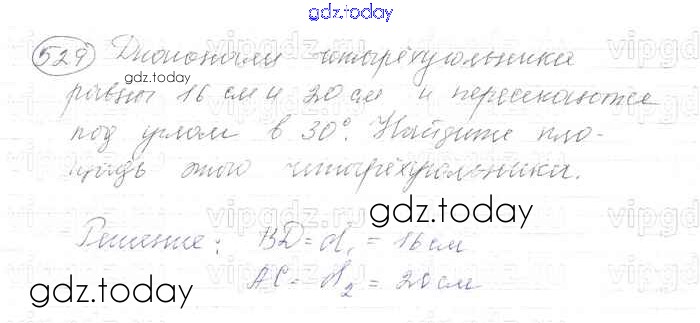 gdz.today
529 Диагонали четырёхугольника
равны 16 см и 20 см и пересекаются
под углом в 30°. Найдите пло-
щадь этого четырёхугольника.
gdz.today
gdz.today
Решение: BD = d₁ = 16 см
AC = d₂ = 20 см
gdz.today